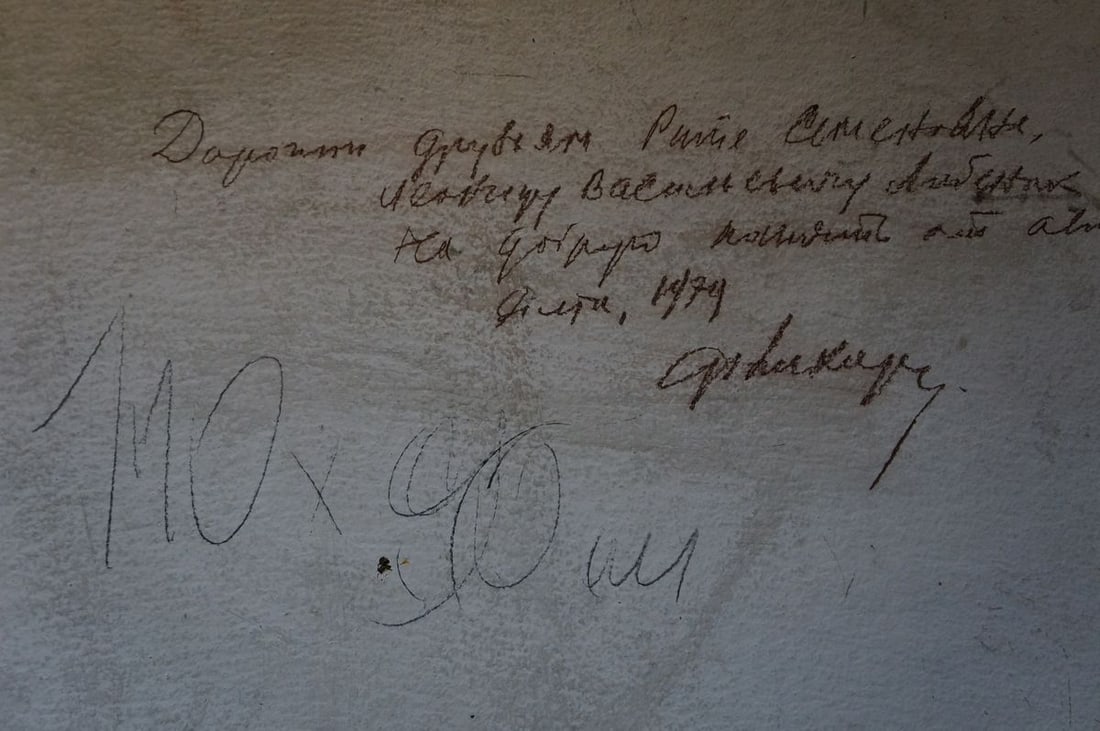 Дорогим друзьям Рите Семеновне,
Леониду Васильевичу
на добрую память от авт
Ялта, 1979
110 х 90